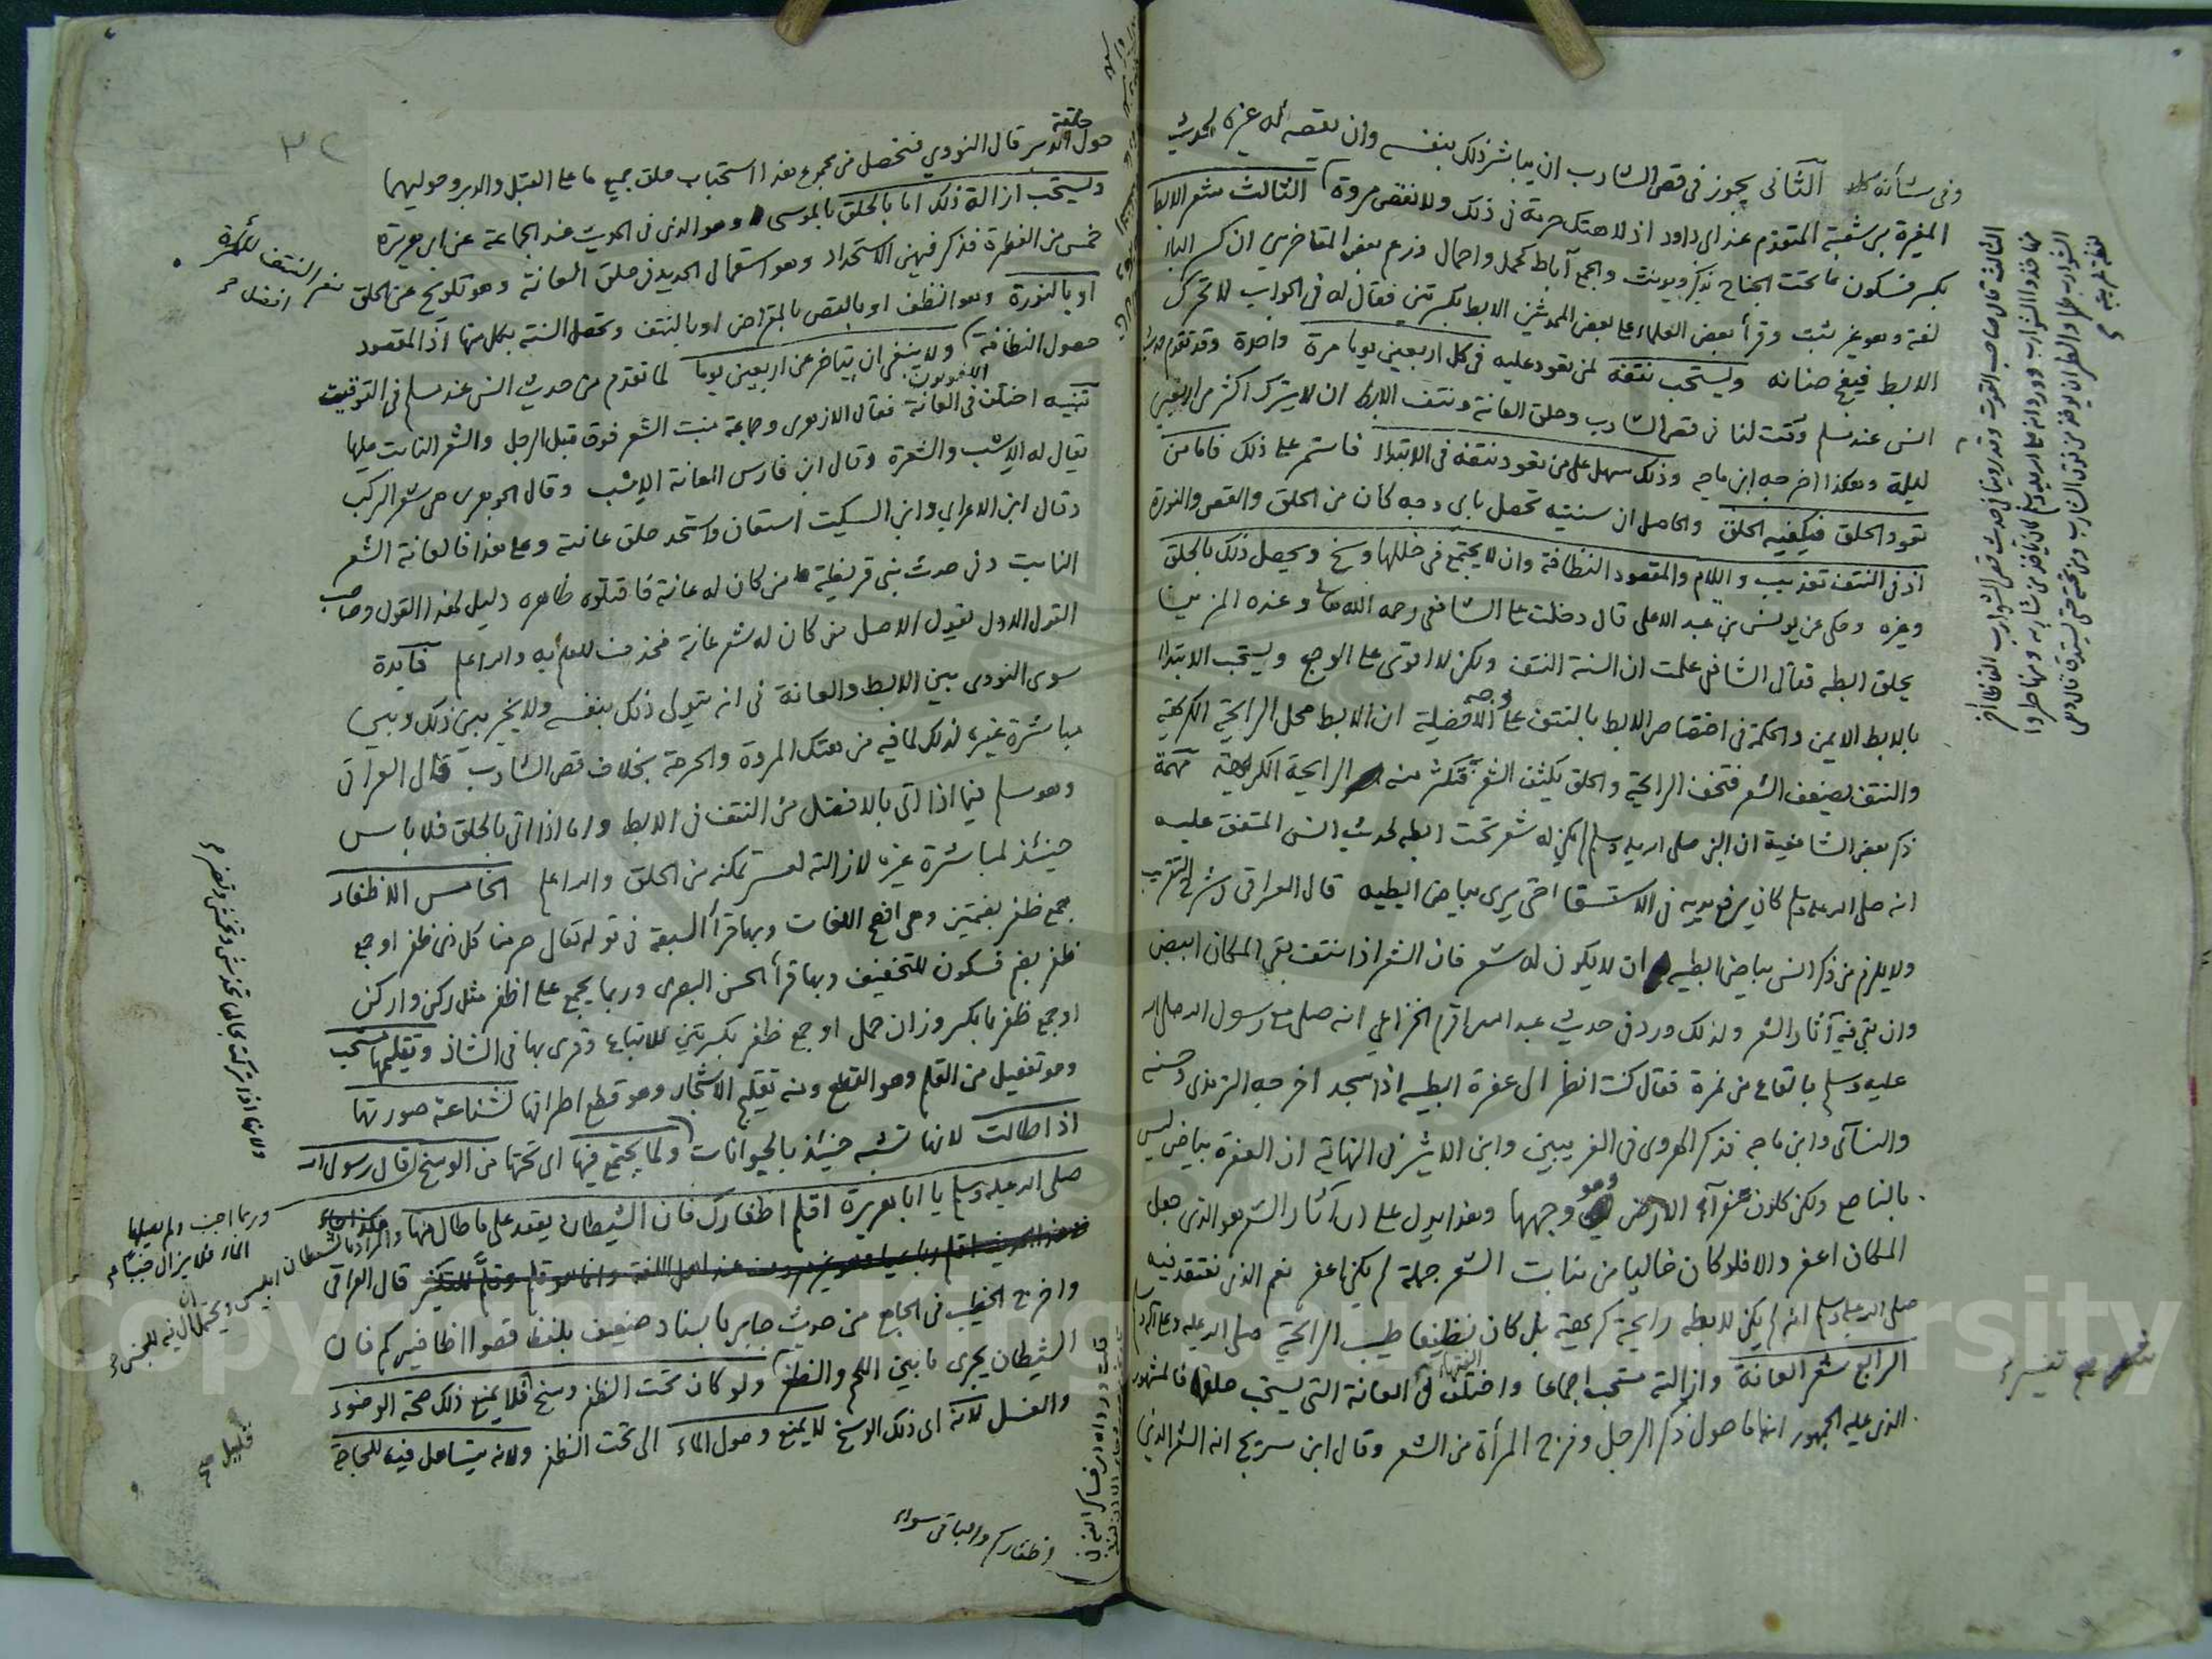 وفي شأنه كله الثاني يجوز في قص الشارب ان يباشر ذلك بنفسه وان يقصه له غيره لحديث
المغيرة بن شعبة المتقدم عند ابي داود اذ لا هتك حرمة في ذلك ولا نقص مروة الثالث شعر الابط
بكسر فسكون ما تحت الجناح يذكر ويونث والجمع آباط كحمل واحمال وزعم بعض المتاخرين ان كسر الباء
لغة وهو غير ثبت وقرأ بعض العلماء على بعض المحدثين الابط بكسرتين فقال له في الجواب لا تحرك
الابط فيفح صنانه ويستحب نتفه لمن تعود عليه في كل اربعين يوما مرة واحدة وقد تقدم حديث
انس عند مسلم وقت لنا في قص الشارب وحلق العانة ونتف الابط ان لا يترك اكثر من اربعين
ليلة وهكذا اخرجه ابن ماجه وذلك سهل على من تعود نتفه في الابتداء فاستمر على ذلك فاما من
تعود الحلق فيكفيه الحلق والحاصل ان سنيته تحصل باي وجه كان من الحلق والقص والنورة
اذ في النتف تعذيب وايلام والمقصود النظافة وان لا يجتمع في خللها وسخ ويحصل ذلك بالحلق
وغيره وحكى عن يونس بن عبد الاعلى قال دخلت على الشافعي رحمه الله وعنده المزين
يحلق ابطه فقال الشافعي علمت ان السنة النتف ولكن لا اقوى على الوجع ويستحب الابتداء
بالابط الايمن والحكمة في اختصاص الابط بالنتف على وجه الافضلية ان الابط محل الرايحة الكريهة
والنتف يضعف الشعر فتخف الرايحة والحلق يكثف الشعر فتكثر منه الرايحة الكريهة تتمة
ذكر بعض الشافعية ان النبي صلى الله عليه وسلم لم يكن له شعر تحت ابطه لحديث انس المتفق عليه
انه صلى الله عليه وسلم كان يرفع يديه في الاستسقا حتى يرى بياض ابطيه قال العراقي في شرح التقريب
ولا يلزم من ذكر انس بياض ابطيه ان لا يكون له شعر فان الشعر اذا نتف بقي المكان ابيض
وان بقي فيه آثار الشعر ولذلك ورد في حديث عبد الله بن اقرم الخزاعي انه صلى مع رسول الله صلى الله
عليه وسلم بالقاع من نمرة فقال كنت انظر الى عفرة ابطيه اذا سجد اخرجه الترمذي وحسنه
والنسآئي وابن ماجه فذكر الهروي في الغريبين وابن الاثير في النهاية ان العفرة بياض ليس
بالناصع ولكن كلون عفرآء الارض وهو وجهها وهذا يدل على ان آثار الشعر هو الذي جعل
المكان اعفر والا فلو كان خاليا من نبات الشعر جملة لم يكن اعفر نعم الذي نعتقد فيه
صلى الله عليه وسلم انه لم يكن لابطه رايحة كريهة بل كان نظيفا طيب الرايحة صلى الله عليه وعلى آله وسلم
الرابع شعر العانة وازالته مستحب اجماعا واختلف الفقهاء في العانة التي يستحب حلقها فالمشهور
الذي عليه الجمهور انها ما حول ذكر الرجل وفرج المرأة من الشعر وقال ابن سريج انه الشعر الذي
حول حلقة الدبر قال النووي فتحصل من مجموع هذا استحباب حلق جميع ما على القبل والدبر وحوليهما
ويستحب ازالة ذلك اما بالحلق بالموسى وهو الذي في الحديث عند الجماعة عن ابي هريرة
خمس من الفطرة فذكر فيهن الاستحداد وهو استعمال الحديد في حلق العانة وهو تلويح عن الحلق
او بالنورة وهو انظف او بالقص بالمقراض او بالنتف وتحصل السنة بكل منها اذ المقصود
حصول النظافة ولا ينبغي ان يتاخر عن اربعين يوما لما تقدم من حديث انس عند مسلم في التوقيت
تنبيه اختلف اللغويون في العانة فقال الازهري وجماعة منبت الشعر فوق قبل الرجل والشعر النابت عليها
يقال له الاسب والشعرة وقال ابن فارس العانة الاسب وقال الجوهري هي شعر الركب
وقال ابن الاعرابي وابن السكيت استعان واستحد حلق عانته وعلى هذا فالعانة الشعر
النابت وفي حديث بني قريظة من كان له عانة فاقتلوه ظاهره دليل لهذا القول وصاحب
القول الاول يقول الاصل من كان له شعر عانة فحذف للعلم به والله اعلم فآيدة
سوى النووي بين الابط والعانة في انه يتولى ذلك بنفسه ولا يخير بين ذلك وبين
مباشرة غيره لذلك لما فيه من هتك المروة والحرمة بخلاف قص الشارب قال العراقي
وهو مسلم فيما اذا اتى بالافضل من النتف في الابط واما اذا اتى بالحلق فلا باس
حينئذ لمباشرة غيره لازالته لعسر تمكنه من الحلق والله اعلم الخامس الاظفار
جمع ظفر بضمتين وهي افصح اللغات وبها قرأ السبعة في قوله تعالى حرمنا كل ذي ظفر او جمع
ظفر بضم فسكون للتخفيف وبها قرأ الحسن البصري وربما يجمع على اظفر مثل ركن واركن
او جمع ظفر بالكسر وزان حمل او جمع ظفر بكسرتين للاتباع وقرى بها في الشاذ وتقليمها مستحب
وهو تفعيل من القلم وهو القطع ومنه تقليم الاشجار وهو قطع اطرافها لشناعة صورتها
اذا طالت لانها تشبه حينئذ بالحيوانات ولما يجتمع فيها اي تحتها من الوسخ قال رسول الله
صلى الله عليه وسلم يا ابا هريرة اقلم اظفارك فان الشيطان يقعد على ما طال منها والمراد بالشيطان
ابليس ويحتمل ان ال فيه للجنس
قال العراقي
واخرج الخطيب في الجامع من حديث جابر باسناد ضعيف بلفظ قصوا اظافيركم فان
الشيطان يجري ما بين اللحم والظفر ولو كان تحت الظفر وسخ فلا يمنع ذلك صحة الوضوء
والغسل لانه اى ذلك الوسخ لا يمنع وصول الماء الى تحت الظفر ولانه يتساهل فيه للحاجة
نعم النتف للمرأة افضل
وربما اجنب ولم يصلها الماء فلا يزال جنبا
قليل
اظفاركم والباقي سواء
تفسير
٣٢
Copyright © King Saud University